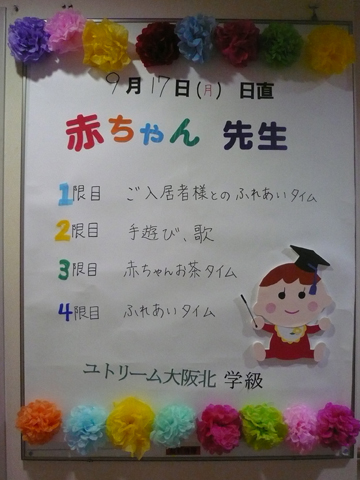 9月17日(月) 日直
赤ちゃん 先生
1限目 ご入居者様とのふれあいタイム
2限目 手遊び、歌
3限目 赤ちゃんお茶タイム
4限目 ふれあいタイム
ユトリーム大阪北 学級